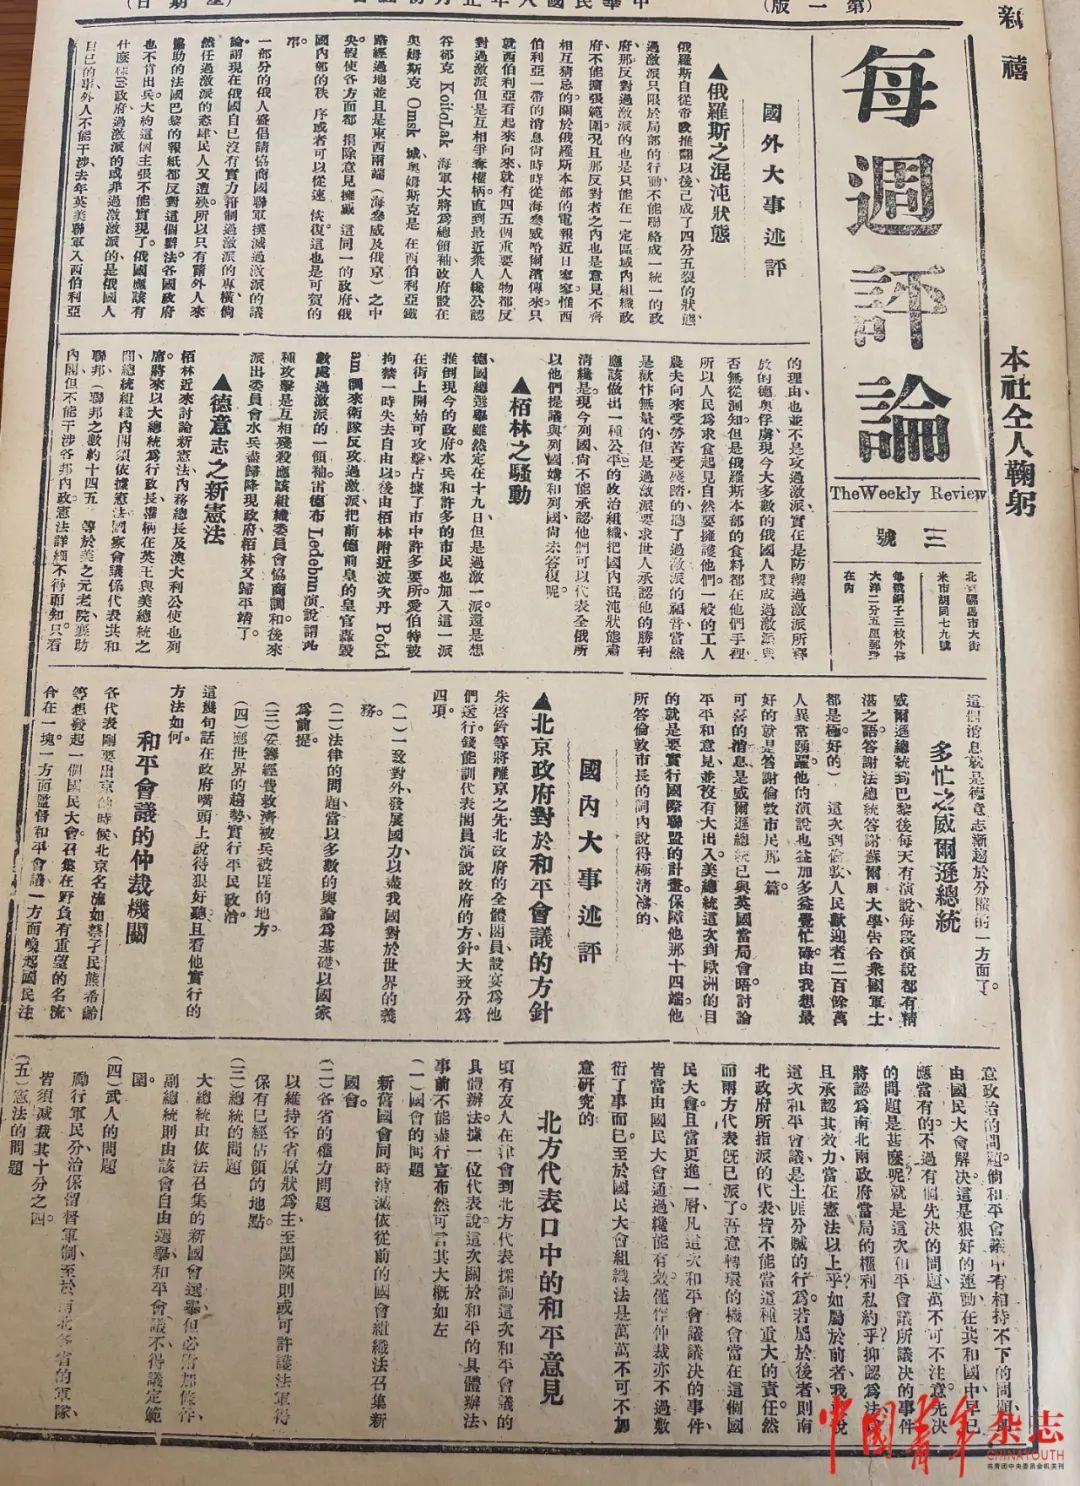 新禧
本社仝人鞠躬
(第一版)
中華民國八年正月初五日
(星期日)
每週評論
The Weekly Review
三號
米市胡同七九號
每號銅子三枚外埠
大洋二分五厘郵費
在內
國外大事述評
▲俄羅斯之混沌狀態
俄羅斯自從帝政推翻以後已成了四分五裂的狀態、
過激派只限於局部的行動不能聯絡成一統一的政
府、那反對過激派的也是只能在一定區域內組織政
府、不能擴張範圍。況且那反對者之內也是意見不齊
相互猜忌的。關於俄羅斯本部的電報近日寥寥惟西
伯利亞一帶的消息尚時時從海參威哈爾濱傳來。只
就西伯利亞看起來向來就有四五個重要人物都反
對過激派但是互相爭奪權柄、直到最近衆人纔公認
谷祁克 Koltolak 海軍大將爲總領袖、政府設在
奧姆斯克 Omsk 城、奧姆斯克是在西伯利亞鐵
路經過地並且是東西兩端(海參威及俄京)之中
央、假使各方面都捐除意見擁戴這同一的政府、俄
國內部的秩序或者可以從速恢復、這也是可賀的
事。
一部分的俄人盛倡請協商國聯軍撲滅過激派的議
論、謂現在俄國自己沒有實力箝制過激派的專橫、倘
然任過激派的恣肆、人民又遭殃、所以只有請外人來
協助的。法國巴黎的報紙都反對這個辦法、各國政府
也不肯出兵、大約這個主張不能實現了。俄國應該有
什麼樣的政府、過激派的或非過激派的、是俄國人
自己的事、外人不能干涉、去年英美聯軍入西伯利亞
的理由、也並不是攻過激派、實在是防禦過激派所釋
於的德奧俘虜、現今大多數的俄國人贊成過激派與
否無從測知、但是俄羅斯本部的食料都在他們手裡
所以人民爲求食起見自然要擁護他們。一般的工人
農夫向來受勞苦受殘踏的、地了過激派的福音當然
是歡忭無量的、但是過激派要求世人承認他的勝利
應該做出一種公平的政治組織把國內混沌狀態肅
清纔是。現今列國尚不能承認他們可以代表全俄所
以他們提議與列國媾和列國尚未答復呢。
▲栢林之騷動
德國總選舉雖然定在十九日、但是過激一派還是想
推倒現今的政府。水兵和許多的市民也加入這一派
在街上開始可攻擊、占據了市中許多要所。愛伯特被
拘禁一時失去自由。以後由栢林附近波次丹 Potd
am 調來衛隊反攻過激派、把前德前皇的皇官轟毀
數處。過激派的一領袖雷德布 Ledebun 演說謂此
種攻擊是互相殘殺應該組織委員會協商調和。後來
派出委員會水兵盡歸降現政府、栢林又歸平靖了。
▲德意志之新憲法
栢林近來討論新憲法、內務總長及澳大利公使也列
席、將來以大總統爲行政長、權柄在英王與美總統之
間、總統組織內閣須依據憲法、國家會議係代表共和
聯邦(聯邦之數約十四五)、等於美之元老院、襄助
內閣但不能干涉各邦內政、憲法詳細不得而知、只看
這個消息就是德意志漸趨於分權的一方面了。
多忙之威爾遜總統
威爾遜總統到巴黎後每天有演說、每段演說都有精
湛之語、答謝法總統答謝蘇爾朋大學告合衆國軍士
都是極好的)這次到倫敦、人民歡迎者二百餘萬
人、異常踴躍。他的演說也益加多益覺忙碌。由我想最
好的就是答謝倫敦市民那一篇。
可喜的消息是威爾遜總統已與英國當局會晤討論
平平和意見、並沒有大出入。美總統這次到歐洲的目
的就是要實行國際聯盟的計畫、保障他那十四端。他
所答倫敦市長的詞內說得極清淨的
國內大事述評
▲北京政府對於和平會議的方針
朱啓鈐等將離京之先、北政府的全體閣員設宴爲他
們送行、錢能訓代表閣員演說政府的方針、大致分爲
四項。
(一)一致對外發展國力以盡我國對於世界的義
務。
(二)法律的問題、當以多數的輿論爲基礎、以國家
爲前提。
(三)妥籌經費救濟被兵被匪的地方。
(四)照世界的趨勢實行平民政治。
這幾句話在政府嘴頭上說得狠好聽、且看他實行的
方法如何。
和平會議的仲裁機關
各代表剛要出京的時候、北京名流如蔡孑民熊希齡
等想發起一個國民大會、召集在野負有重望的名流、
合在一塊、一方面監督和平會議一方面喚起國民注
意政治的問題倘和平會議中有相持不下的問題、便
由國民大會解決、這是狠好的運動、在共和國中早已
應當有的。不過有個先決的問題、萬不可不注意、先決
的問題是甚麼呢、就是這次和平會議所議決的事件
將認爲南北兩政府當局的權利私約乎?抑認爲法
且承認其效力、當在憲法以上乎?如屬於前者、我敢說
這次和平會議是土匪分贓的行爲。若屬於後者則南
北政府所指派的代表皆不能當這種重大的責任。然
而兩方代表旣已派了。吾意轉環的機會當在這個國
民大會、且當更進一層、凡這次和平會議議決的事件、
皆當由國民大會通過纔能有效、僅作仲裁亦不過敷
衍了事而已、至於國民大會組織法是萬萬不可不加
意研究的
北方代表口中的和平意見
頃有友人在津會到北方代表、探詢這次和平會議的
具體辦法、據一位代表說、這次關於和平的具體辦法、
事前不能盡行宣布、然可言其大概如左
(一)國會的問題
新舊國會同時消滅、依從前的國會組織法召集新
國會。
(二)各省的權力問題
以維持各省原狀爲主、至閩陝則或可許護法軍得
保有已經佔領的地點。
(三)總統的問題
大總統由依法召集的新國會選舉、但必附加條件、
副總統則由該會自由選舉、和平會議不得議定範
圍。
(四)武人的問題
勵行軍民分治保留督軍制、至於南北各省的軍隊、
皆須減裁其十分之四。
(五)憲法的問題
中國青年杂志
CHINA YOUTH
共青团中央委员会机关刊